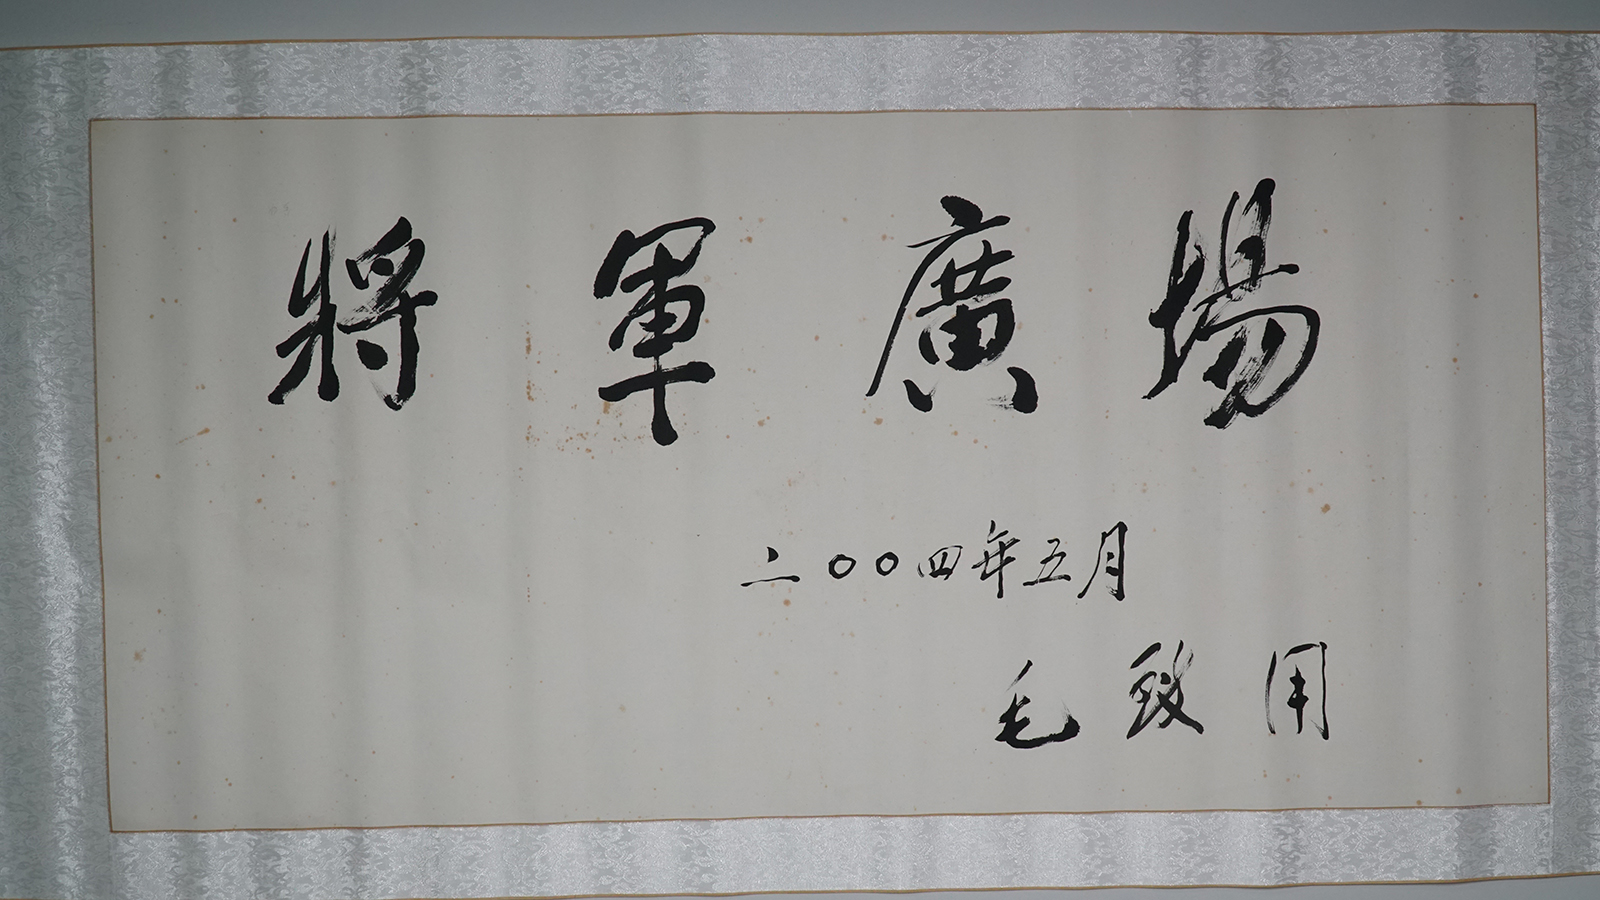 將軍廣場
二〇〇四年五月
毛致用